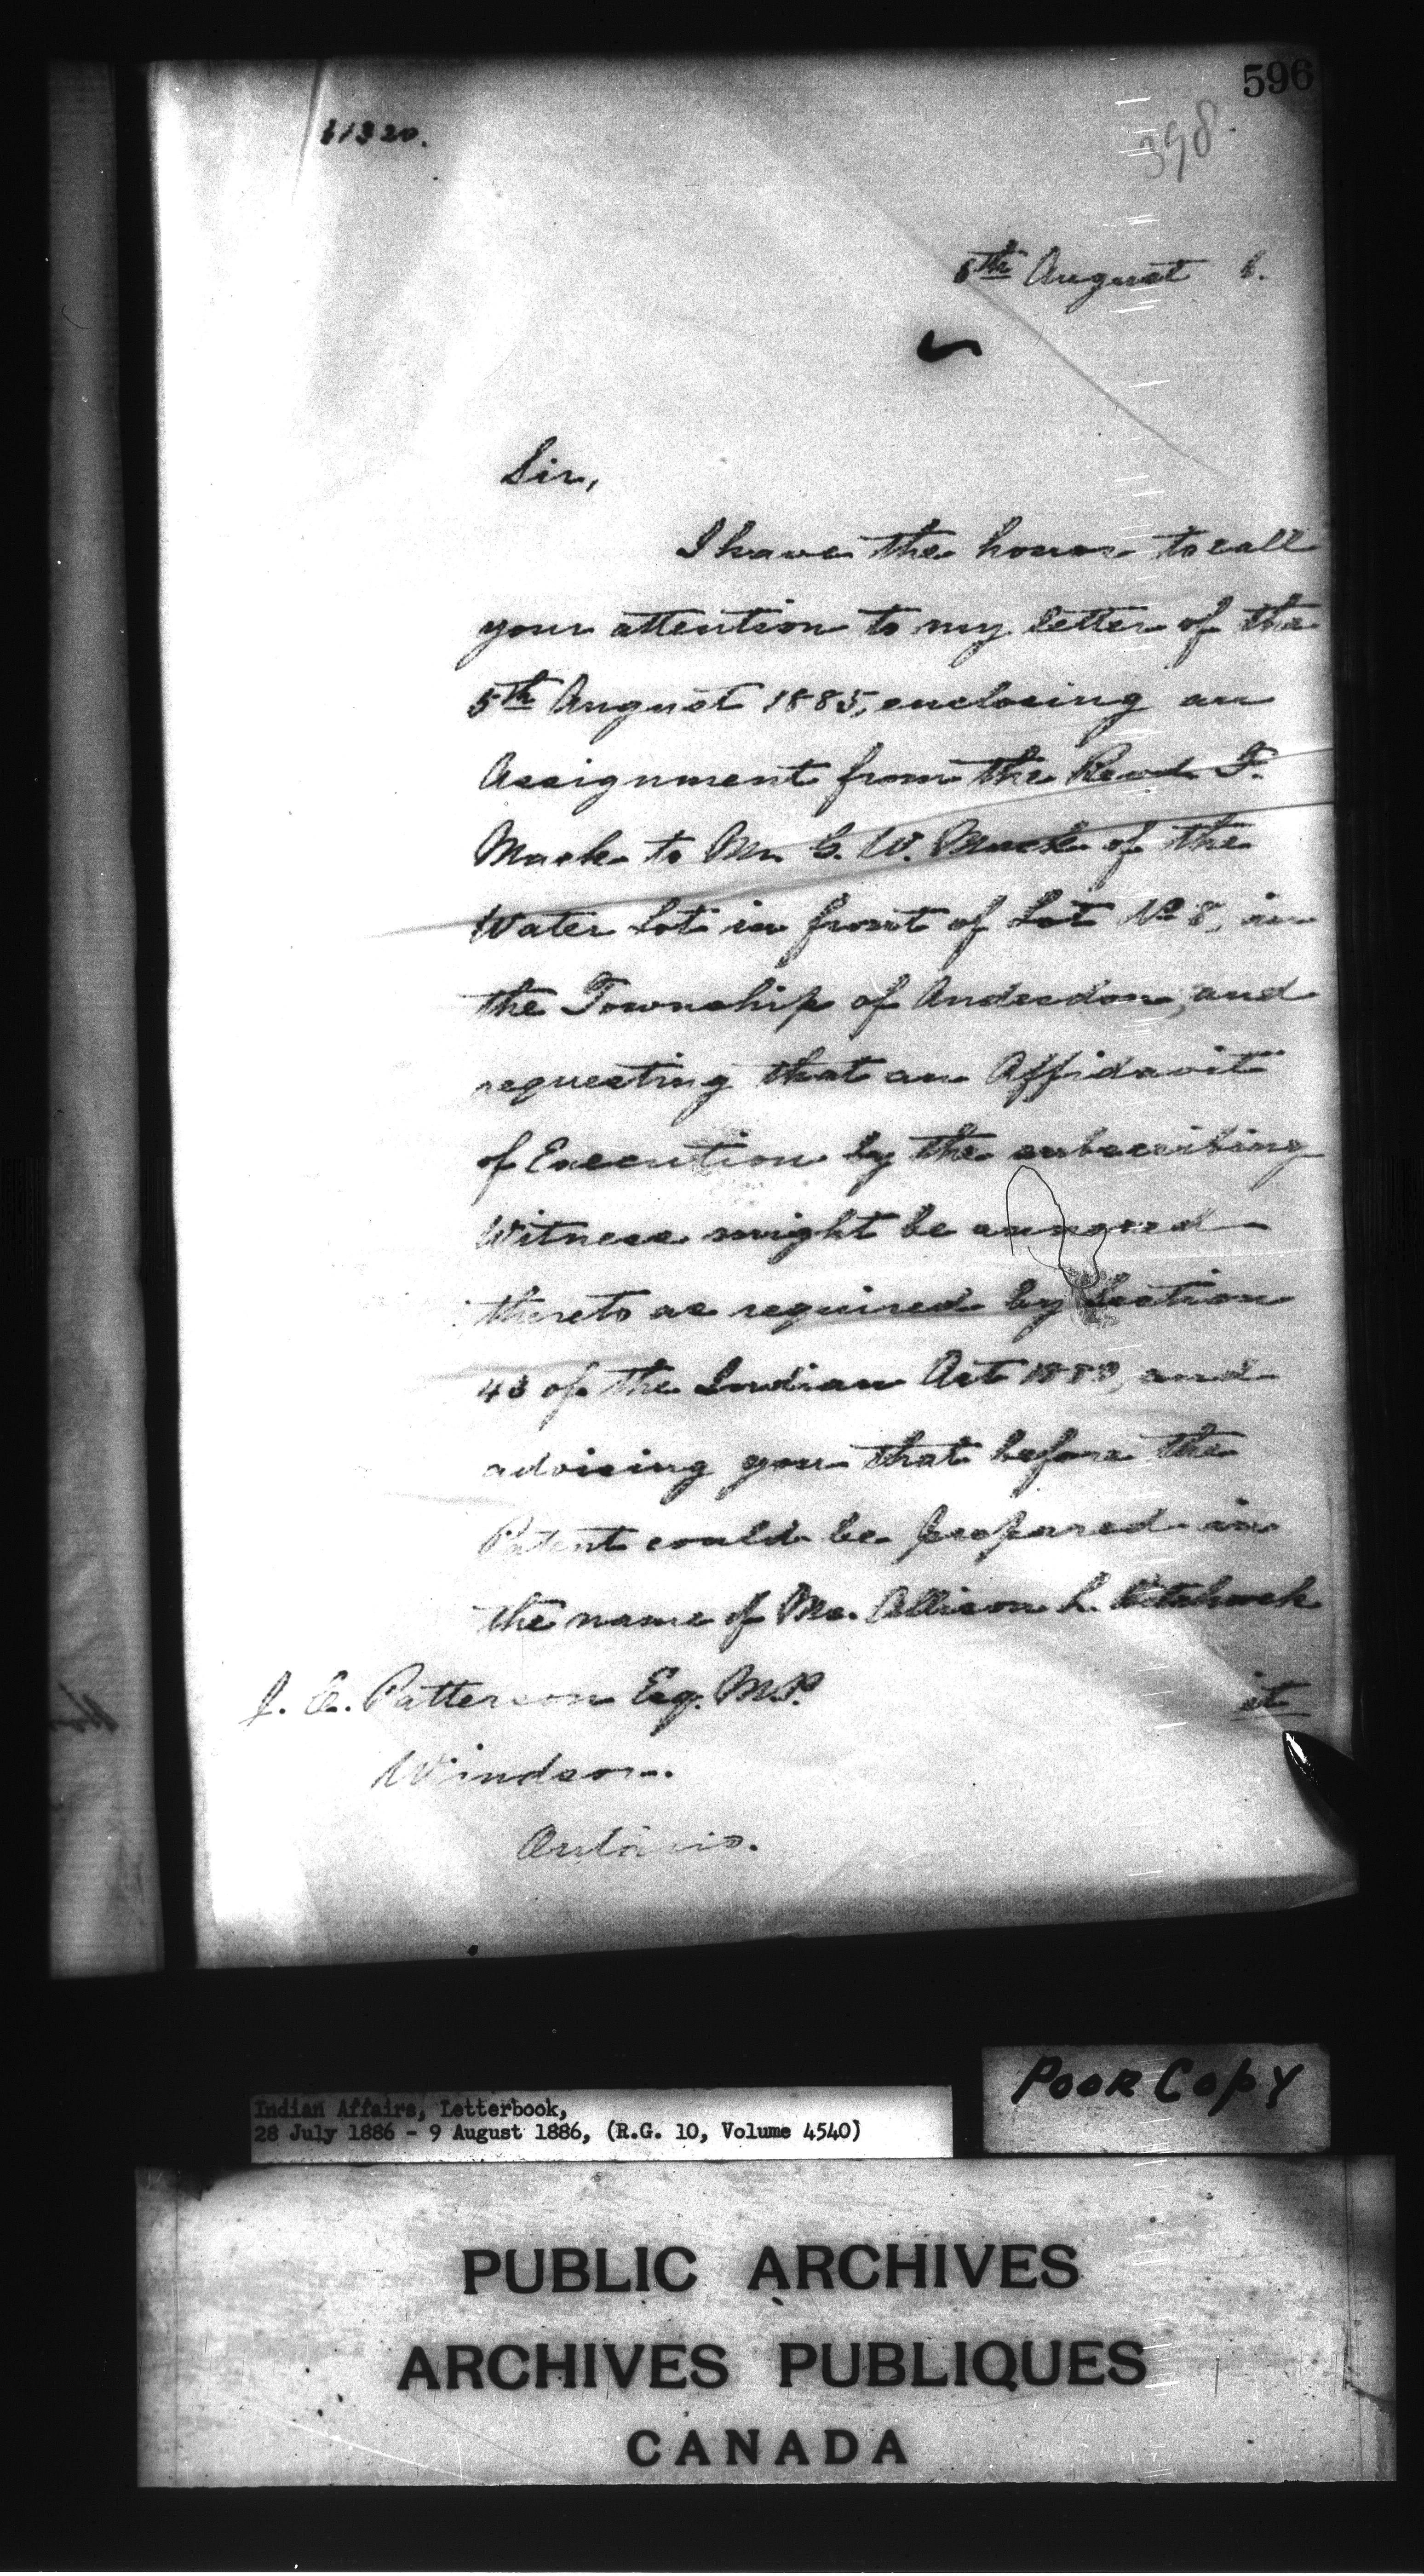 596
61320.
398.
6th August 6.
Sir,
I have the honor to call
your attention to my letter of the
5th August 1885, enclosing an
Assignment from the Revd. F.
Mack to Mr. G. W. Mack of the
Water Lot in front of Lot No 8, in
the Township of Anderdon, and
requesting that an Affidavit
of Execution by the subscribing
Witness might be annexed
thereto as required by Section
43 of the Indian Act 1880, and
advising you that before the
Patent could be prepared in
the name of Mr. Allison L.
it
J. C. Patterson Esq. M.P.
Windsor.
Ontario.
Poor Copy
Indian Affairs, Letterbook,
28 July 1886 - 9 August 1886, (R.G. 10, Volume 4540)
PUBLIC ARCHIVES
ARCHIVES PUBLIQUES
CANADA